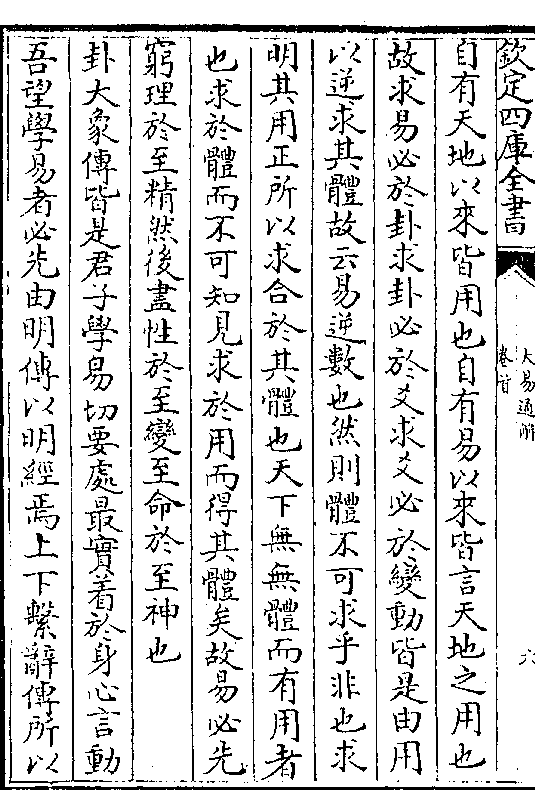 欽定四庫全書
大易通解
卷首
六
自有天地以來皆用也自有易以來皆言天地之用也
故求易必於卦求卦必於爻求爻必於變動皆是由用
以逆求其體故云易逆數也然則體不可求乎非也求
明其用正所以求合於其體也天下無無體而有用者
也求於體而不可知見求於用而得其體矣故易必先
窮理於至精然後盡性於至變至命於至神也
卦大象傳皆是君子學易切要處最實着於身心言動
吾望學易者必先由明傳以明經焉上下繫辭傳所以